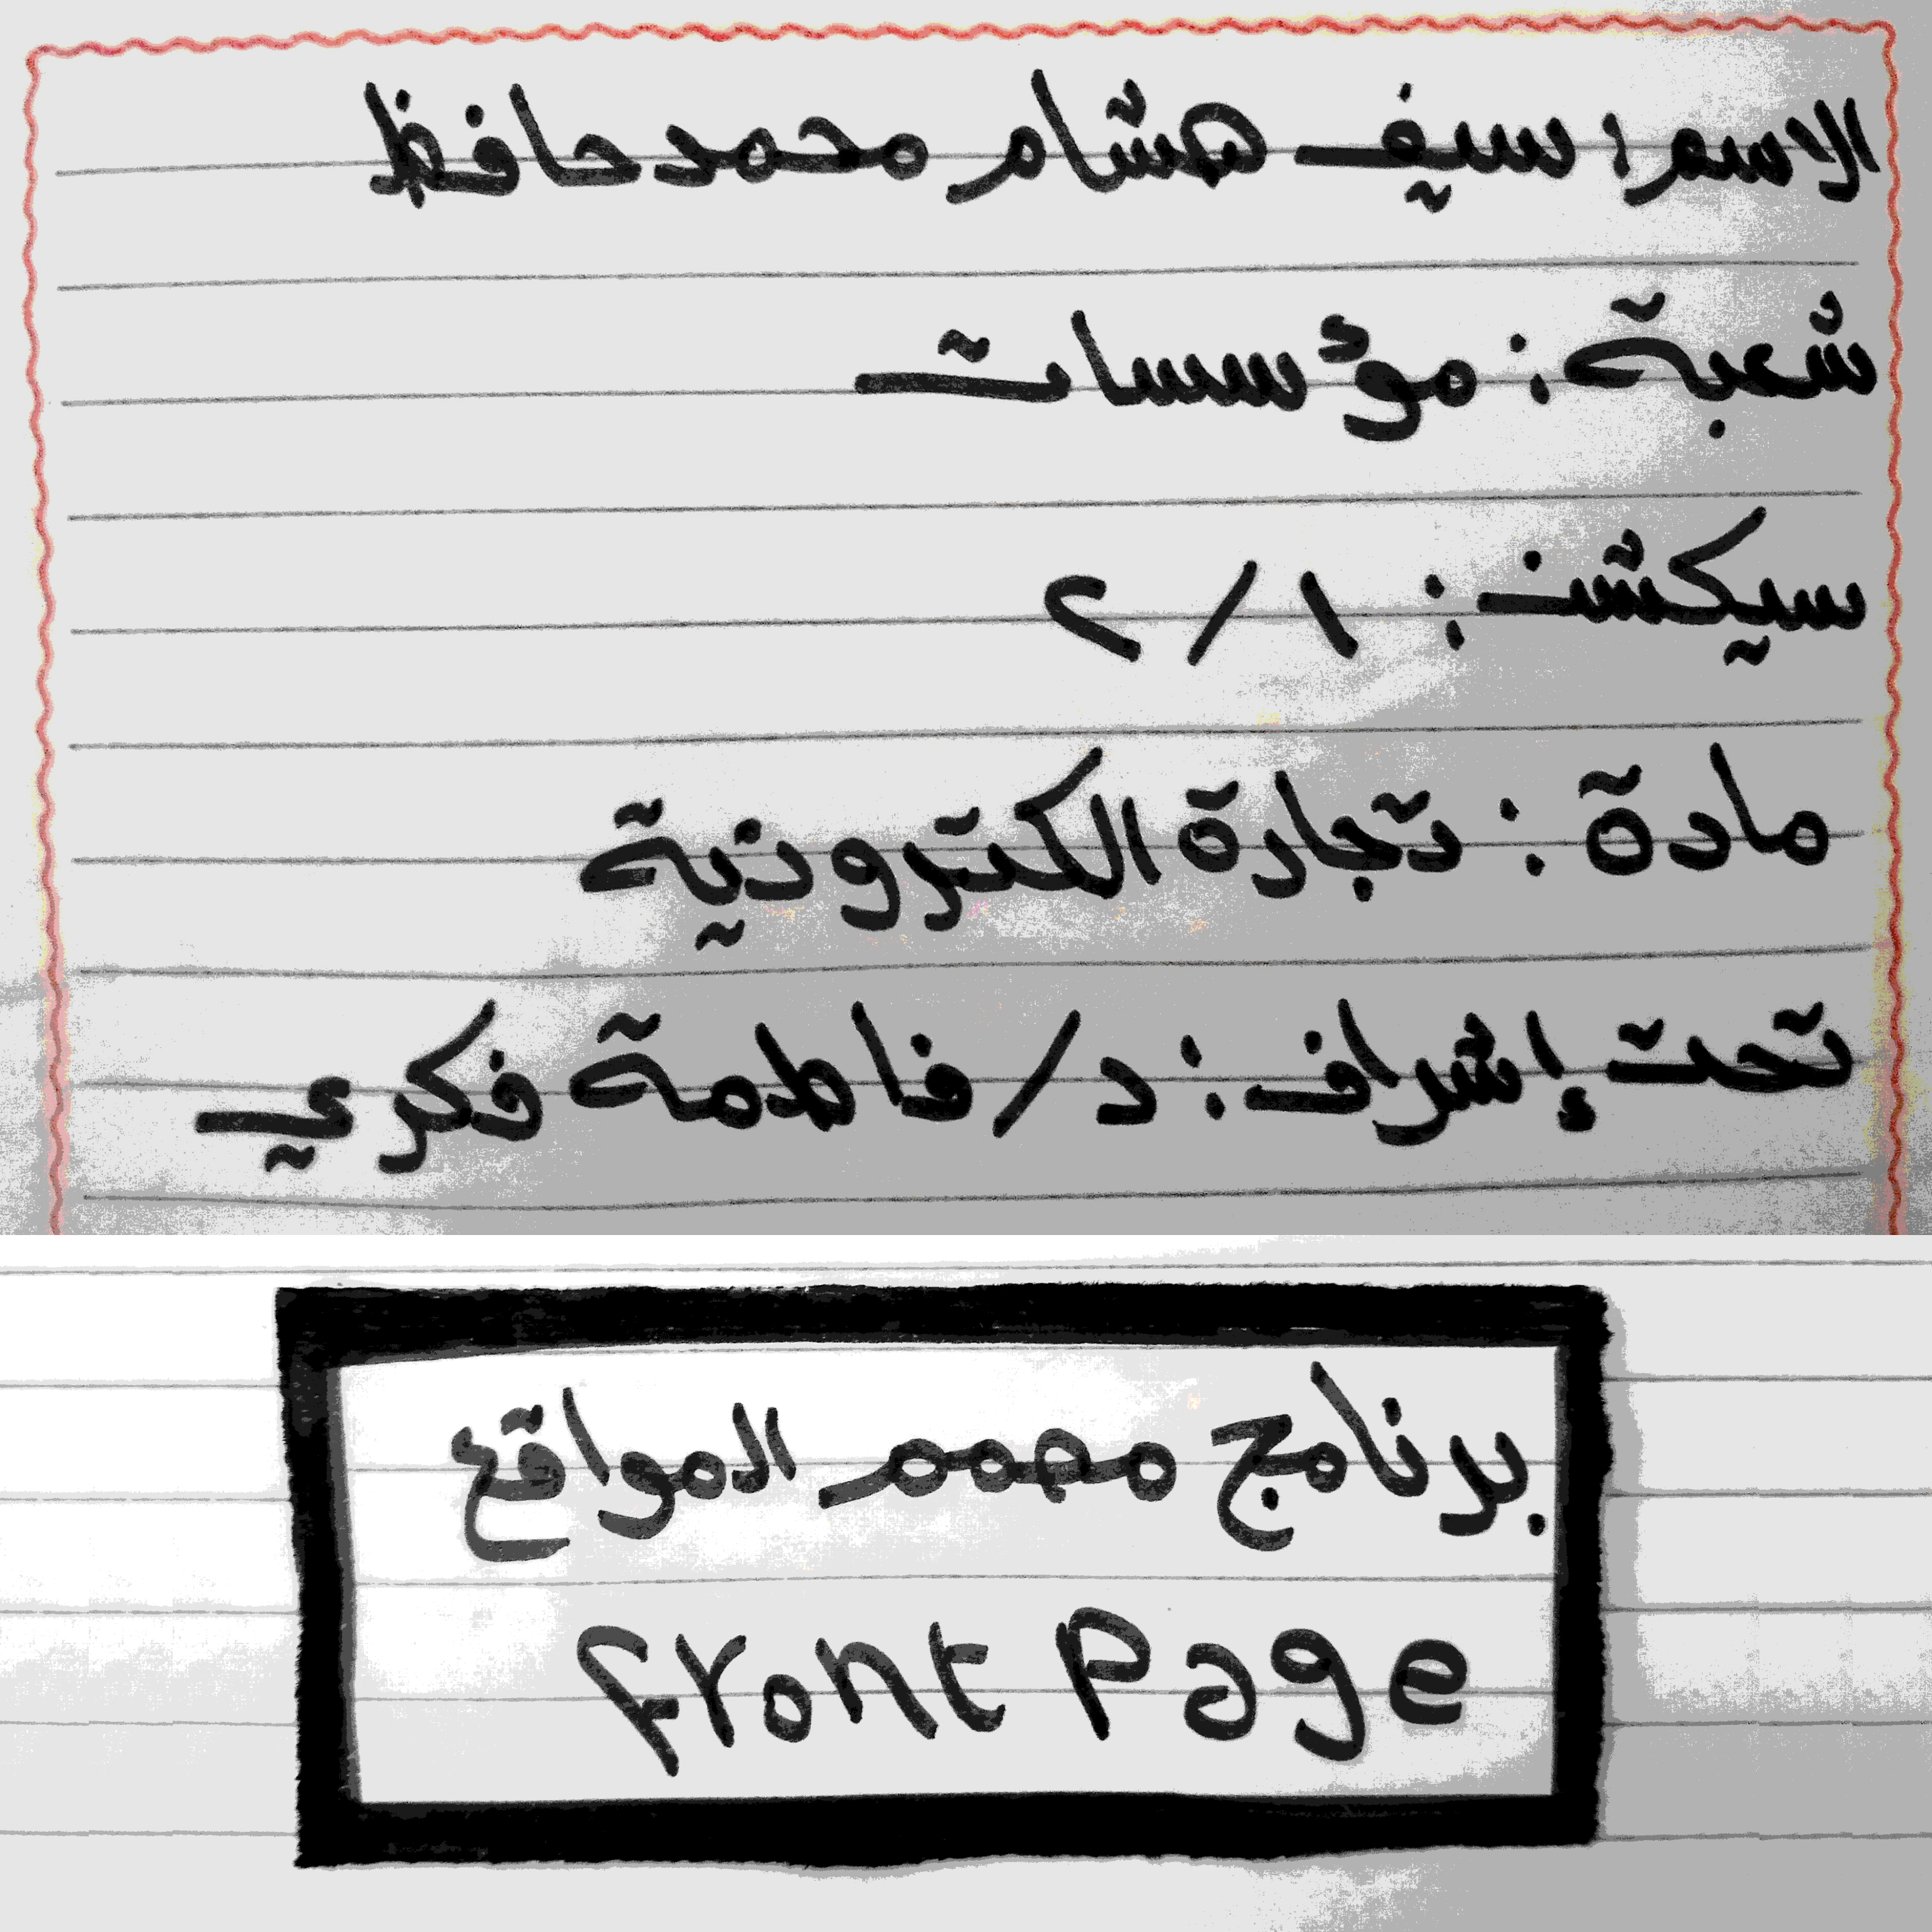 الاسم: سيف هشام محمد حافظ
شعبة: مؤسسات
سيكشن: ١ / ٢
مادة: تجارة الكترونية
تحت إشراف: د/ فاطمة فكري
برنامج مصمم المواقع
Front Page